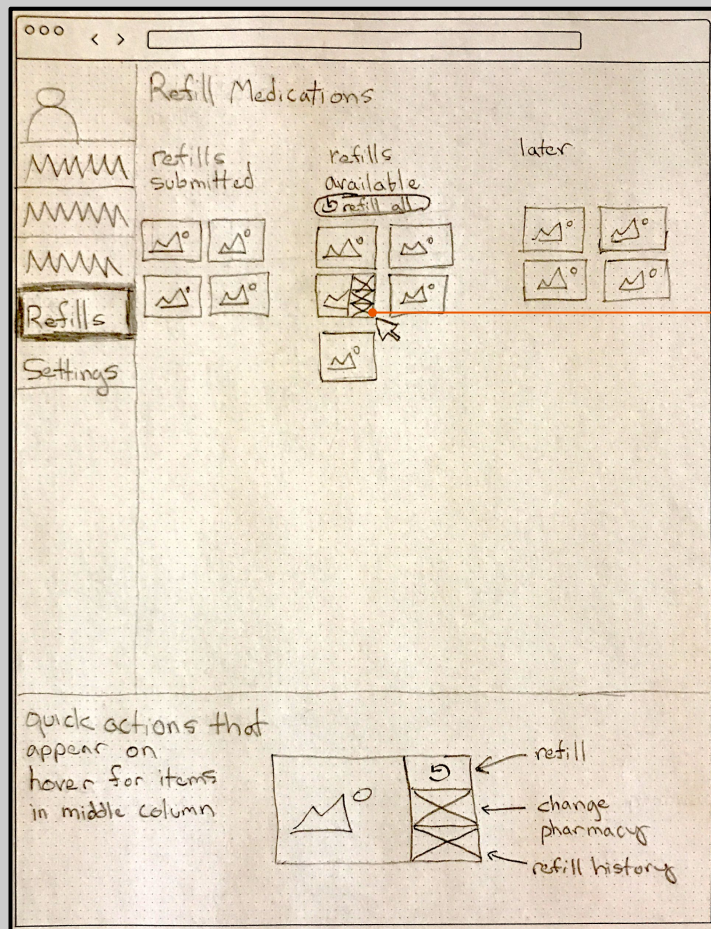 Refill Medications
refills
submitted
refills
available
refill all
later
Refills
Settings
quick actions that
appear on
hover for items
in middle column
refill
change
pharmacy
refill history